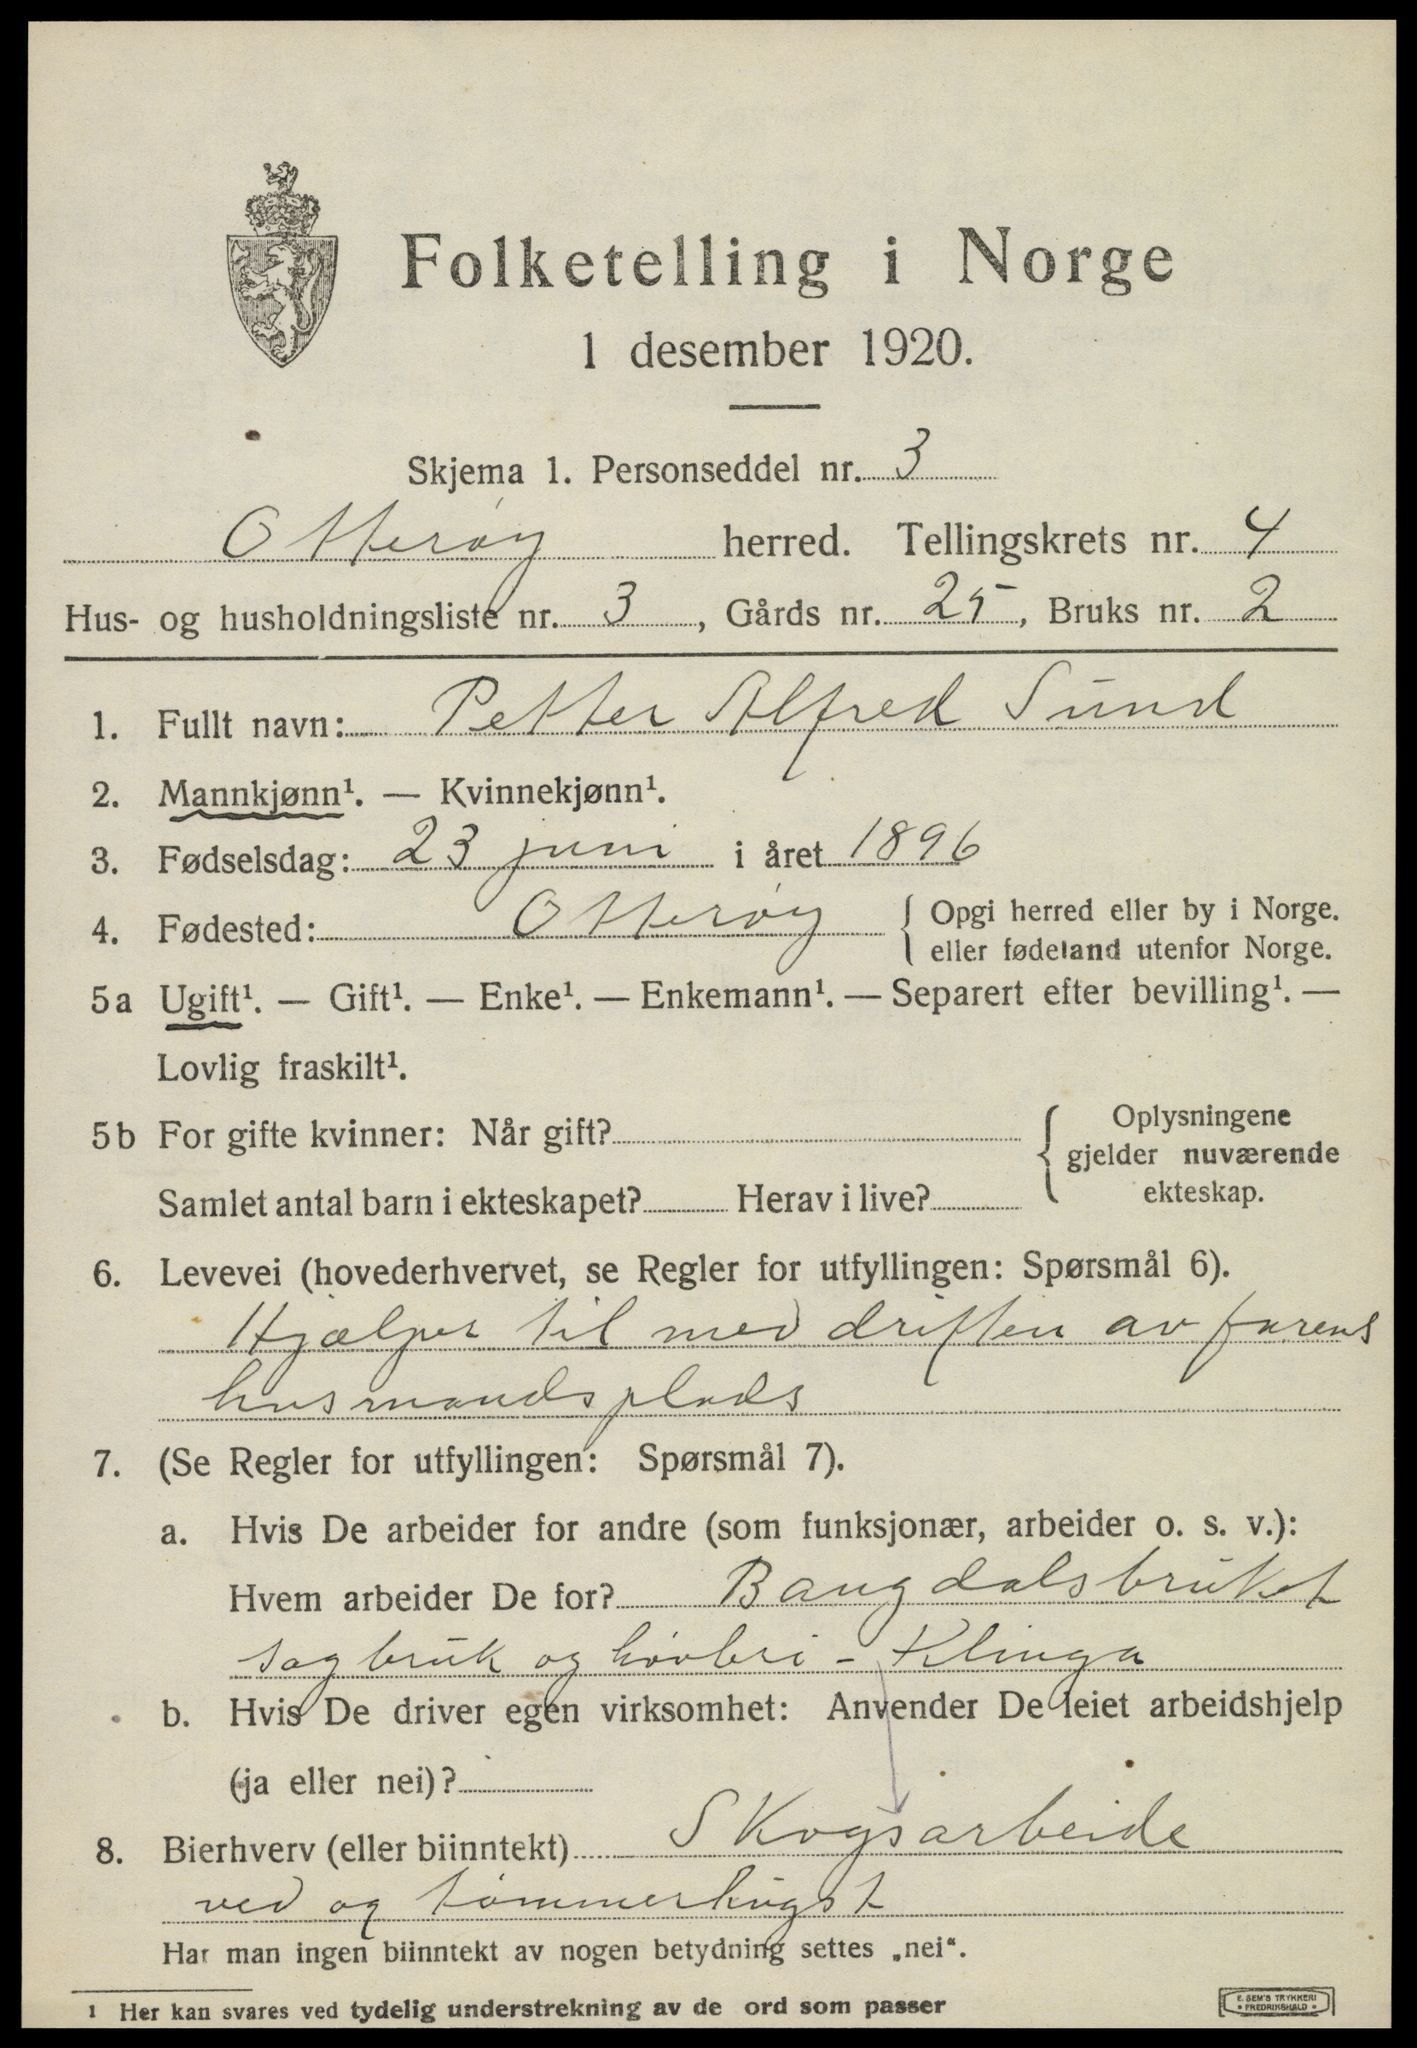 Folketelling i Norge
1 desember 1920.
Skjema 1. Personseddel nr. 3
Otterøy herred. Tellingskrets nr. 4
Hus- og husholdningsliste nr. 3, Gårds nr. 25, Bruks nr. 2
1. Fullt navn: Petter Alfred Sund
2. Mannkjønn¹. — Kvinnekjønn¹.
3. Fødselsdag: 23 juni i året 1896
4. Fødested: Otterøy { Opgi herred eller by i Norge.
eller fødeland utenfor Norge.
5a Ugift¹. — Gift¹. — Enke¹. — Enkemann¹. — Separert efter bevilling¹. —
Lovlig fraskilt¹.
5b For gifte kvinner: Når gift? { Oplysningene
gjelder nuværende
ekteskap.
Samlet antal barn i ekteskapet? Herav i live?
6. Levevei (hovederhvervet, se Regler for utfyllingen: Spørsmål 6).
Hjælper til med driften av farens
husmandsplads
7. (Se Regler for utfyllingen: Spørsmål 7).
a. Hvis De arbeider for andre (som funksjonær, arbeider o. s. v.):
Hvem arbeider De for? Bangdalsbruket
sagbruk og høvleri - Klinga
b. Hvis De driver egen virksomhet: Anvender De leiet arbeidshjelp
(ja eller nei)?
8. Bierhverv (eller biinntekt) Skogsarbeide
ved og tømmerhugst
Har man ingen biinntekt av nogen betydning settes „nei“.
1 Her kan svares ved tydelig understrekning av de ord som passer
E. SEM'S TRYKKERI
• FREDRIKSHALD •